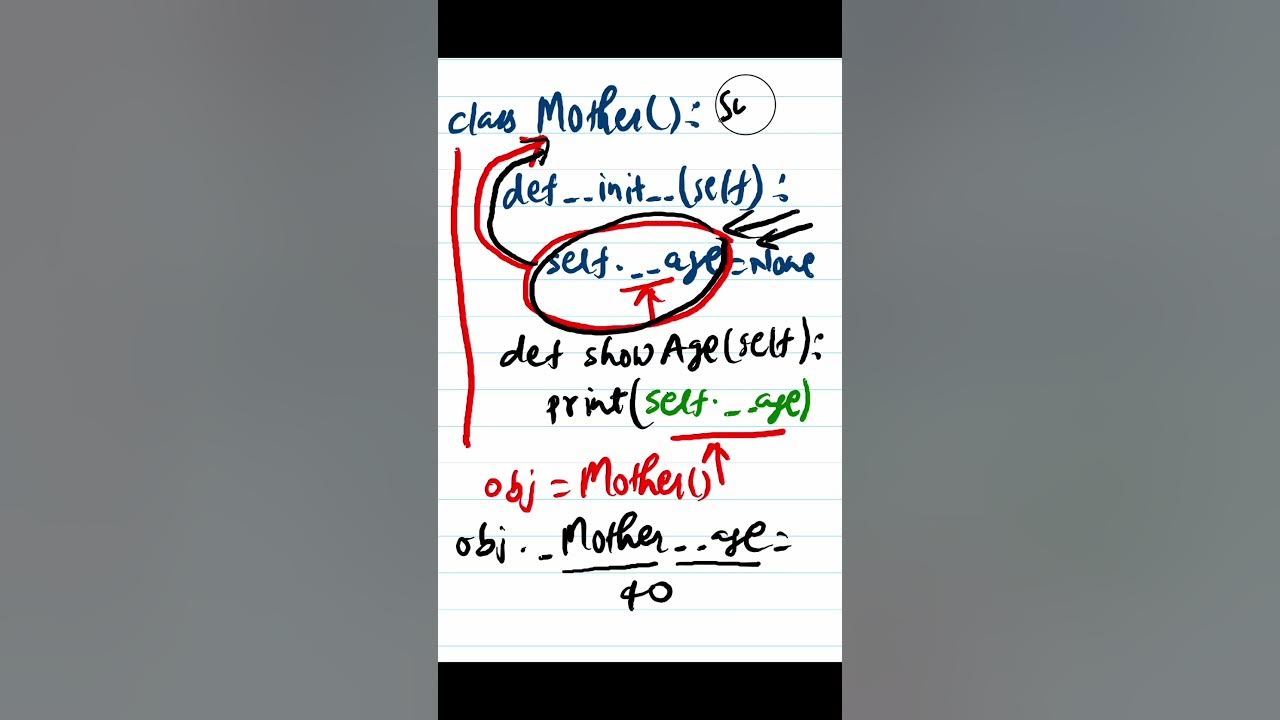 class Mother():
def __init__(self):
self.__age=None
def showAge(self):
print(self.__age)
obj=Mother()
obj._Mother__age=
40